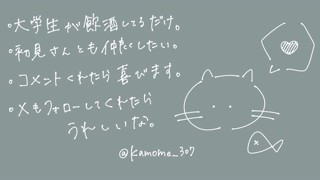 ・大学生が飲酒してるだけ。
・初見さんとも仲良くしたい。
・コメントくれたら喜びます。
・Xもフォローしてくれたら
うれしいな。
@kamome_307